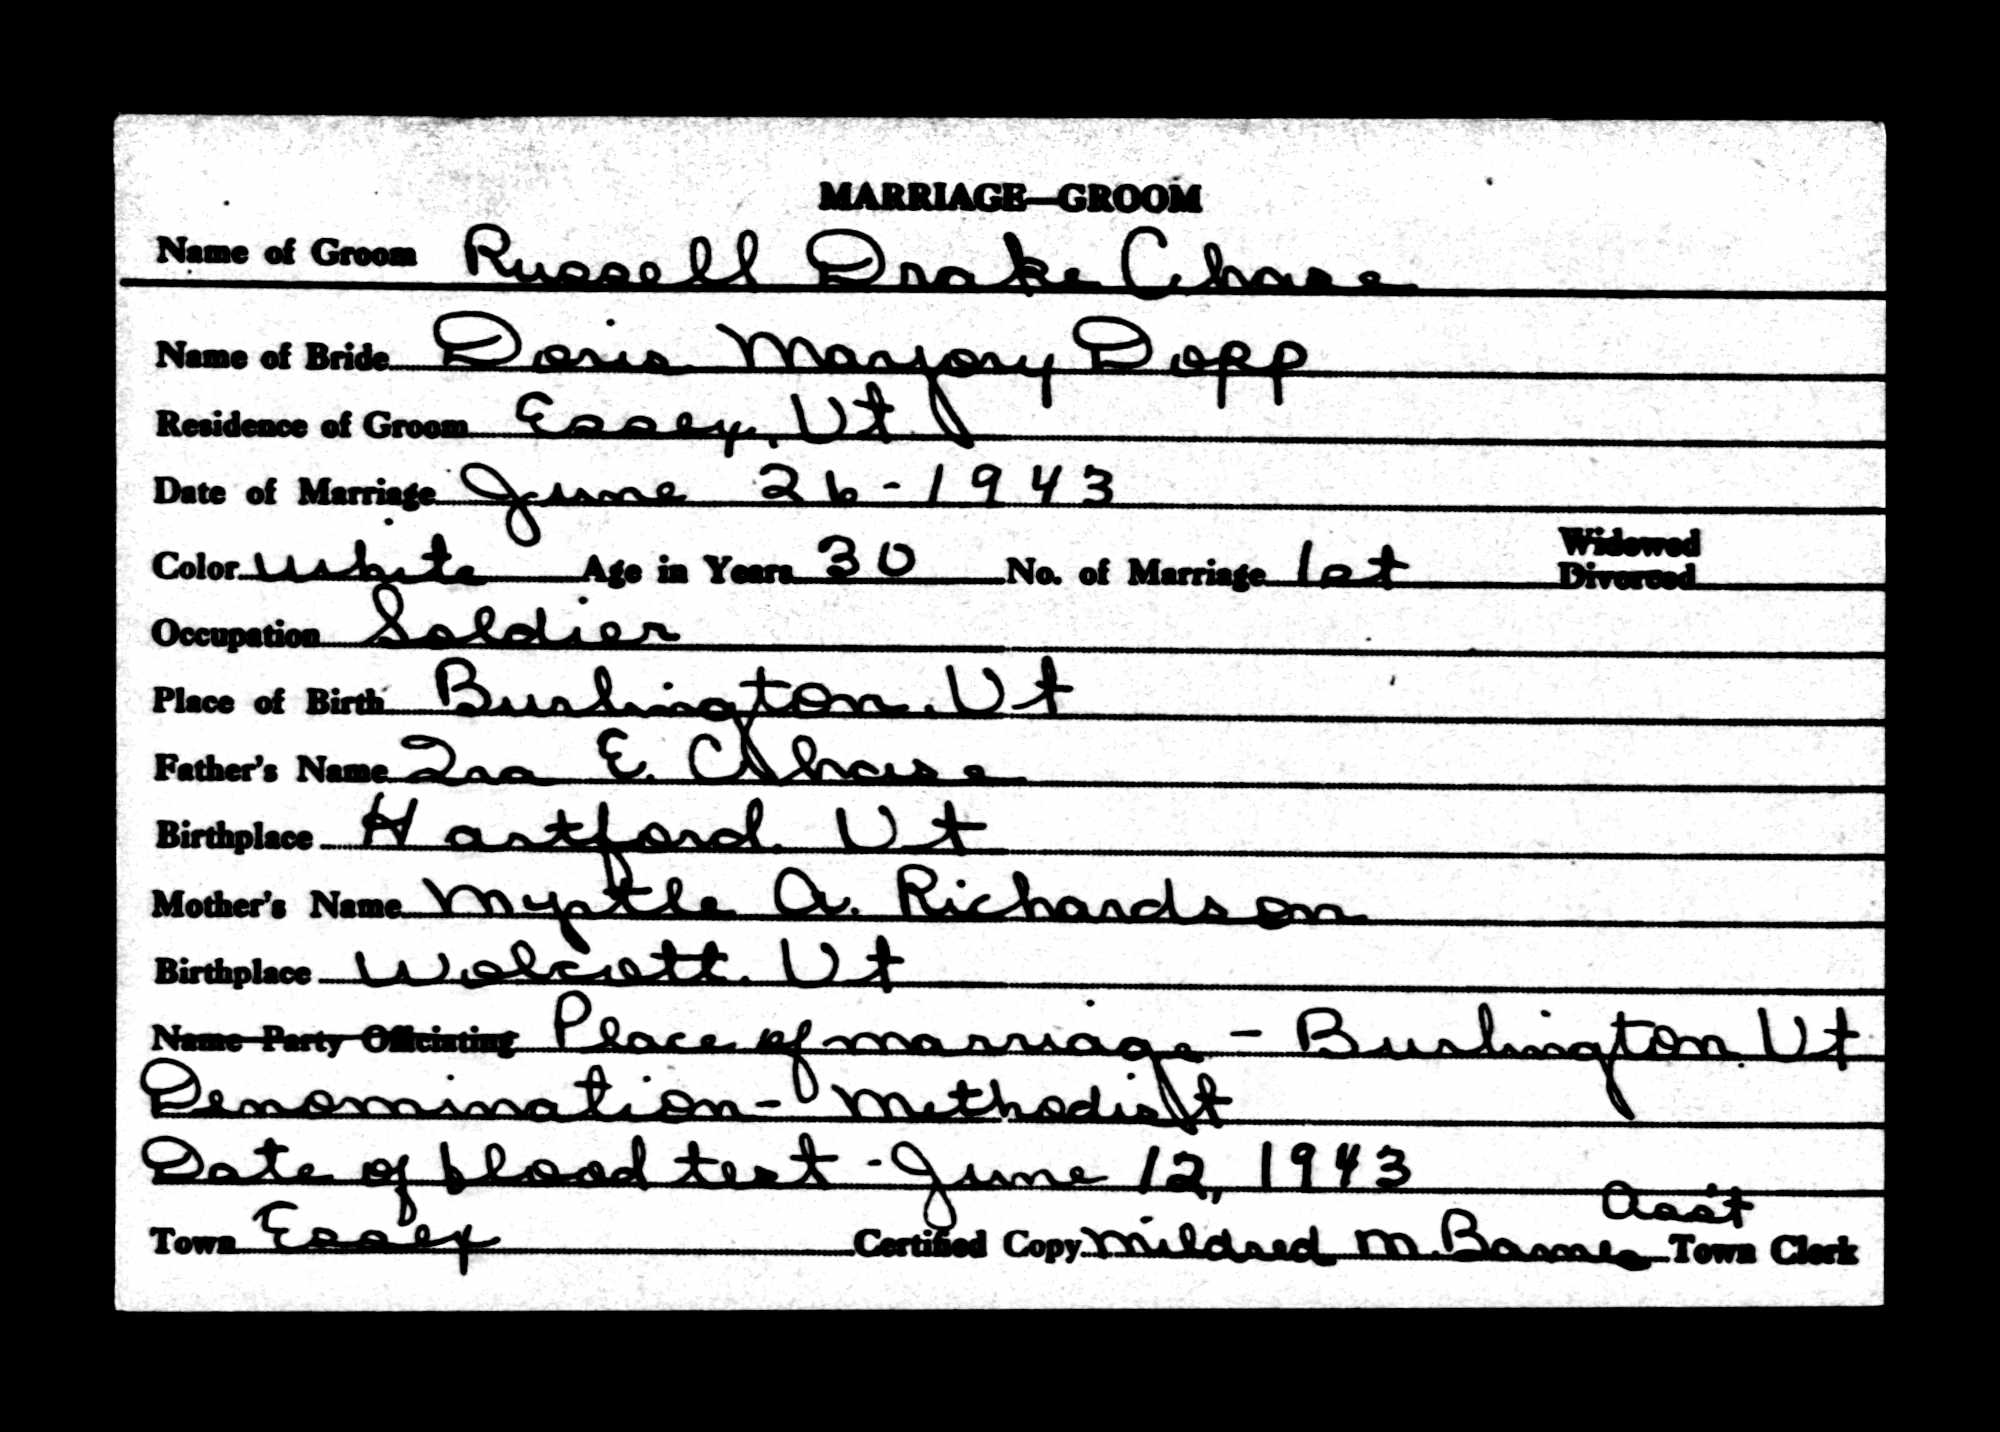 MARRIAGE—GROOM
Name of Groom Russell Drake Chase
Name of Bride Doris Marjory Dopp
Residence of Groom Essex, Vt
Date of Marriage June 26-1943
Color White Age in Years 30 No. of Marriage 1st Widowed Divorced
Occupation Soldier
Place of Birth Burlington, Vt
Father's Name Ira E. Chase
Birthplace Hartford, Vt
Mother's Name Myrtle A. Richardson
Birthplace Wolcott, Vt
Name Party Officiating Place of marriage - Burlington, Vt
Denomination - Methodist
Date of blood test - June 12, 1943
Town Essex Certified Copy Mildred M. Barnes Ass't Town Clerk